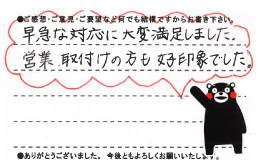 ●ご感想・ご意見・ご要望など何でも結構ですからお書き下さい。
早急な対応に大変満足しました。
営業、取付けの方も好印象でした。
●ありがとうございました。今後ともよろしくお願いいたします。